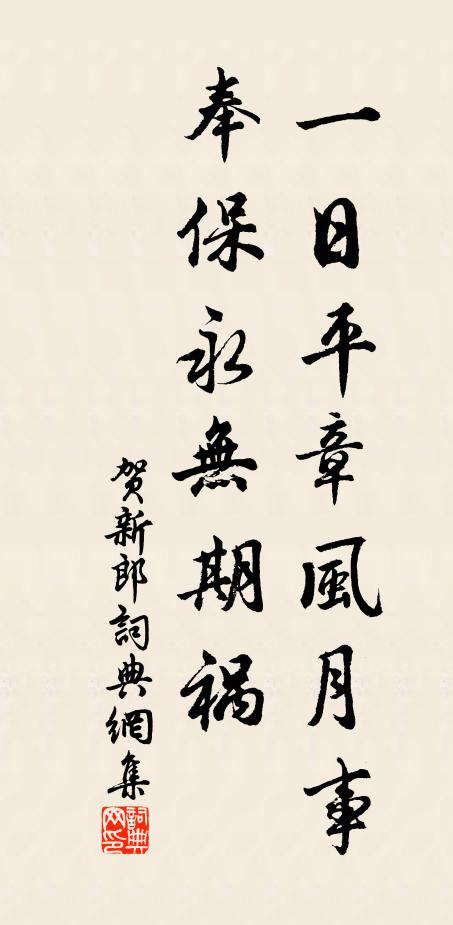 一日平章風月事
奉保永無期禍
賀新郎詞典網集
詞典网印